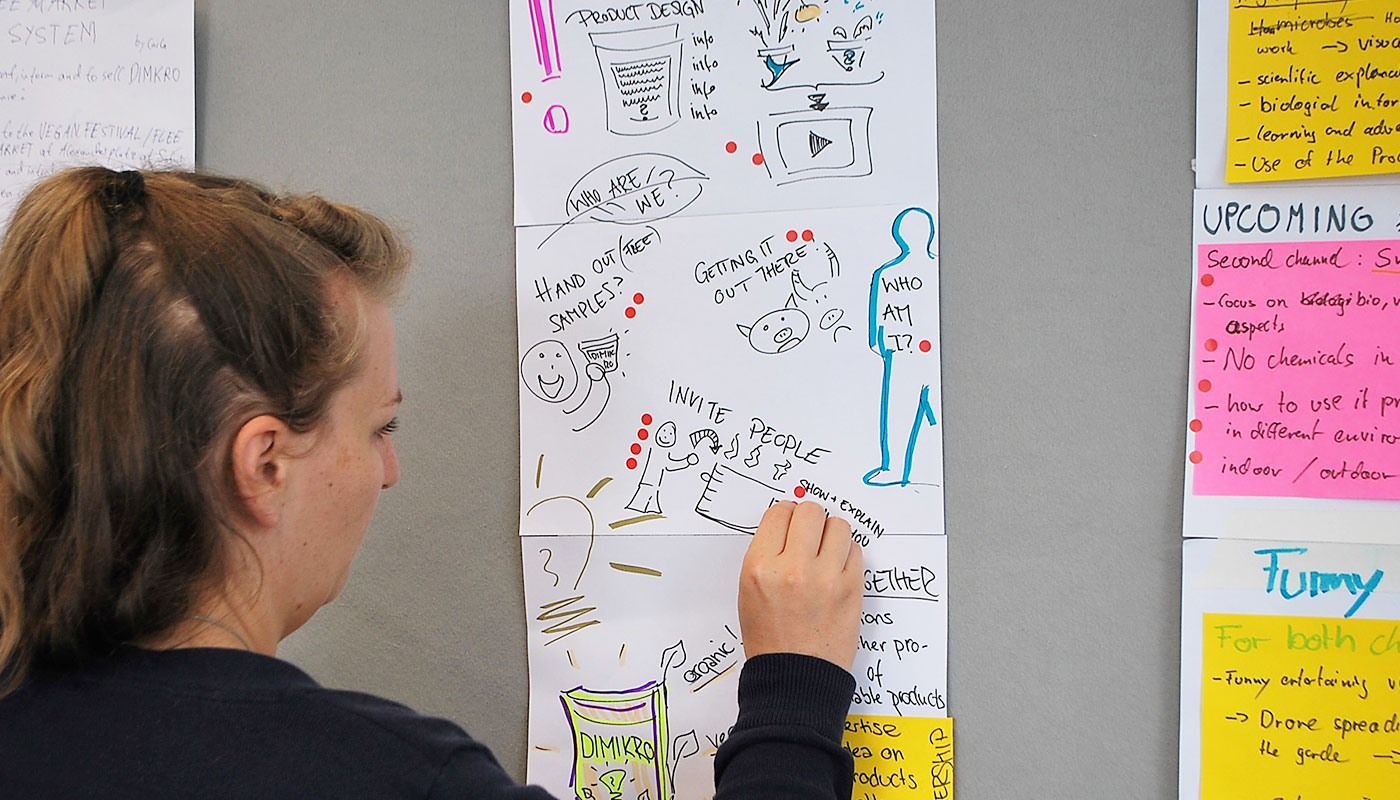 FREE MARKET
SYSTEM
inform and to sell DIMKRO
to the VEGAN FESTIVAL / FLEE
MARKET at
and
PRODUCT DESIGN
info
info
info
info
?
?
WHO ARE
WE?
HAND OUT (FREE)
SAMPLES?
DIMIK
RO
GETTING IT
OUT THERE
WHO
AM
I?
INVITE PEOPLE
SHOW + EXPLAIN
YOU
GETHER
ions
her pro-
of
able products
organic!
DIMIKRO
ertise
dea on
roducts
ERSHIP
microbes
work → visua
- scientific explana
- biological infor
- learning and adva
- Use of the Pro
UPCOMING
Second channel: Su
- focus on bio, v
aspects
- No chemicals in
- how to use it pr
in different enviro
indoor / outdoor
Funny
For both ch
- Funny entertaining v
→ Drone spreadi
the garde →